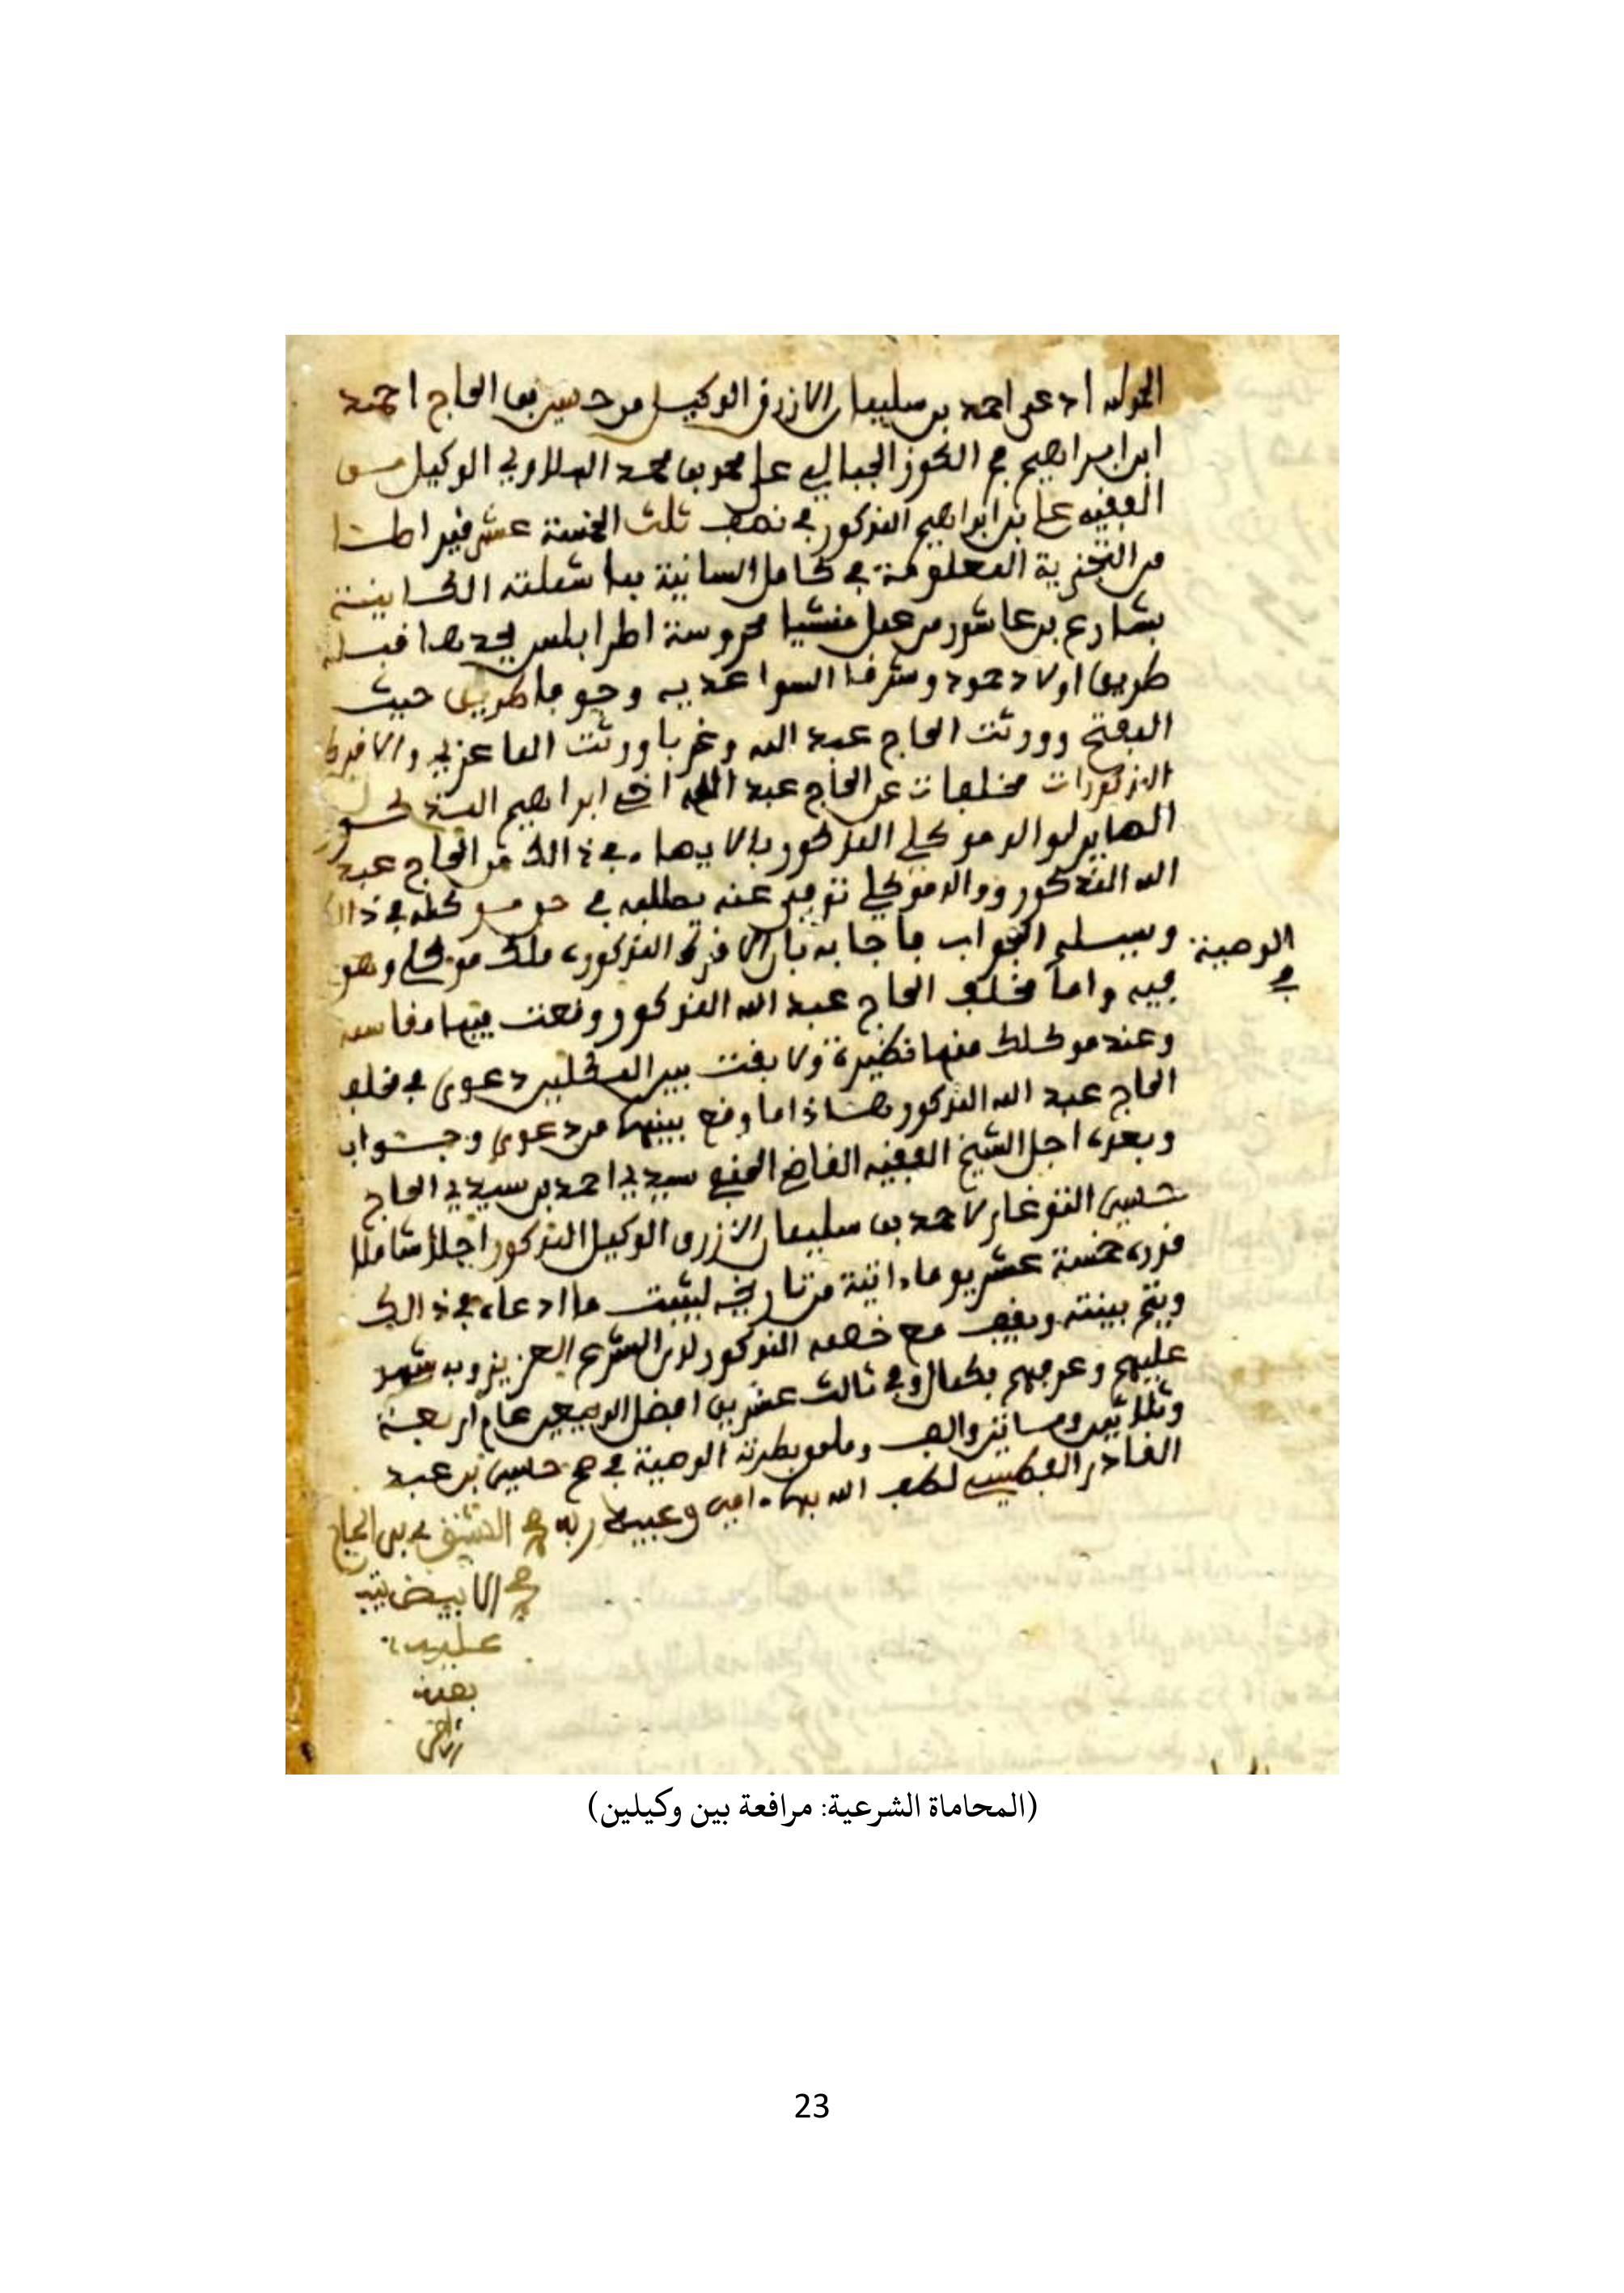 الحمد لله ادعى احمد بن سليمان الازرق الوكيل من حسين بن الحاج احمد
ابن ابراهيم الجبالي على محمد الوكيل من
الفقيه علي بن ابراهيم المذكور في نصف ثلث الخمسة عشر قيراطا
من التجزية المعلومة في كامل السانية بما شملته الكاينة
بشارع بن عاشور من عمل منشية محروسة اطرابلس يحدها قبلة
طريق اولاد حمود وشرقا السواعدية وجوفا طريق حيث
الفتح وورثت الحاج عبد الله وغربا وورثت
المذكورات مخلفات عن الحاج عبد الله اخ ابراهيم المذكور
لوالد موكلي المذكور في ذالك من الحاج عبد
الله المذكور ووالد موكلي توفي عنه يطلبه في حق موكله في ذالك
وسيله الجواب فاجابه بان المذكورة ملك موكلي وهو
الوصية
في
فيه واما مخلف الحاج عبد الله المذكور وقعت فيها مقاسمة
وعند موكلك منها ولا بقت بين دعوى في مخلف
الحاج عبد الله المذكور هاذا ما وقع بينهما من دعوى وجواب
وبعده اجل الشيخ الفقيه القاضي الحنفي سيدي احمد بن سيدي الحاج
حسين لاحمد بن سليمان الازرق الوكيل المذكور اجلا شاملا
قدره خمسة عشر يوما اتية من تاريخه ليثبت ما ادعاه في ذالك
ويتم بينته ويقف مع خصمه المذكور لدى الشرع العزيز وبه شهد
عليهم وعرفهم بكمال وفي ثالث عشرين افضل الربيعين عام اربعة
وثلاثين ومايتين والف وملحق بطرته الوصية في صح حسين بن عبد
القادر لطف الله بهما امين وعبيد ربه
الابيض
عليه
بمنه
(المحاماة الشرعية: مرافعة بين وكيلين)
23